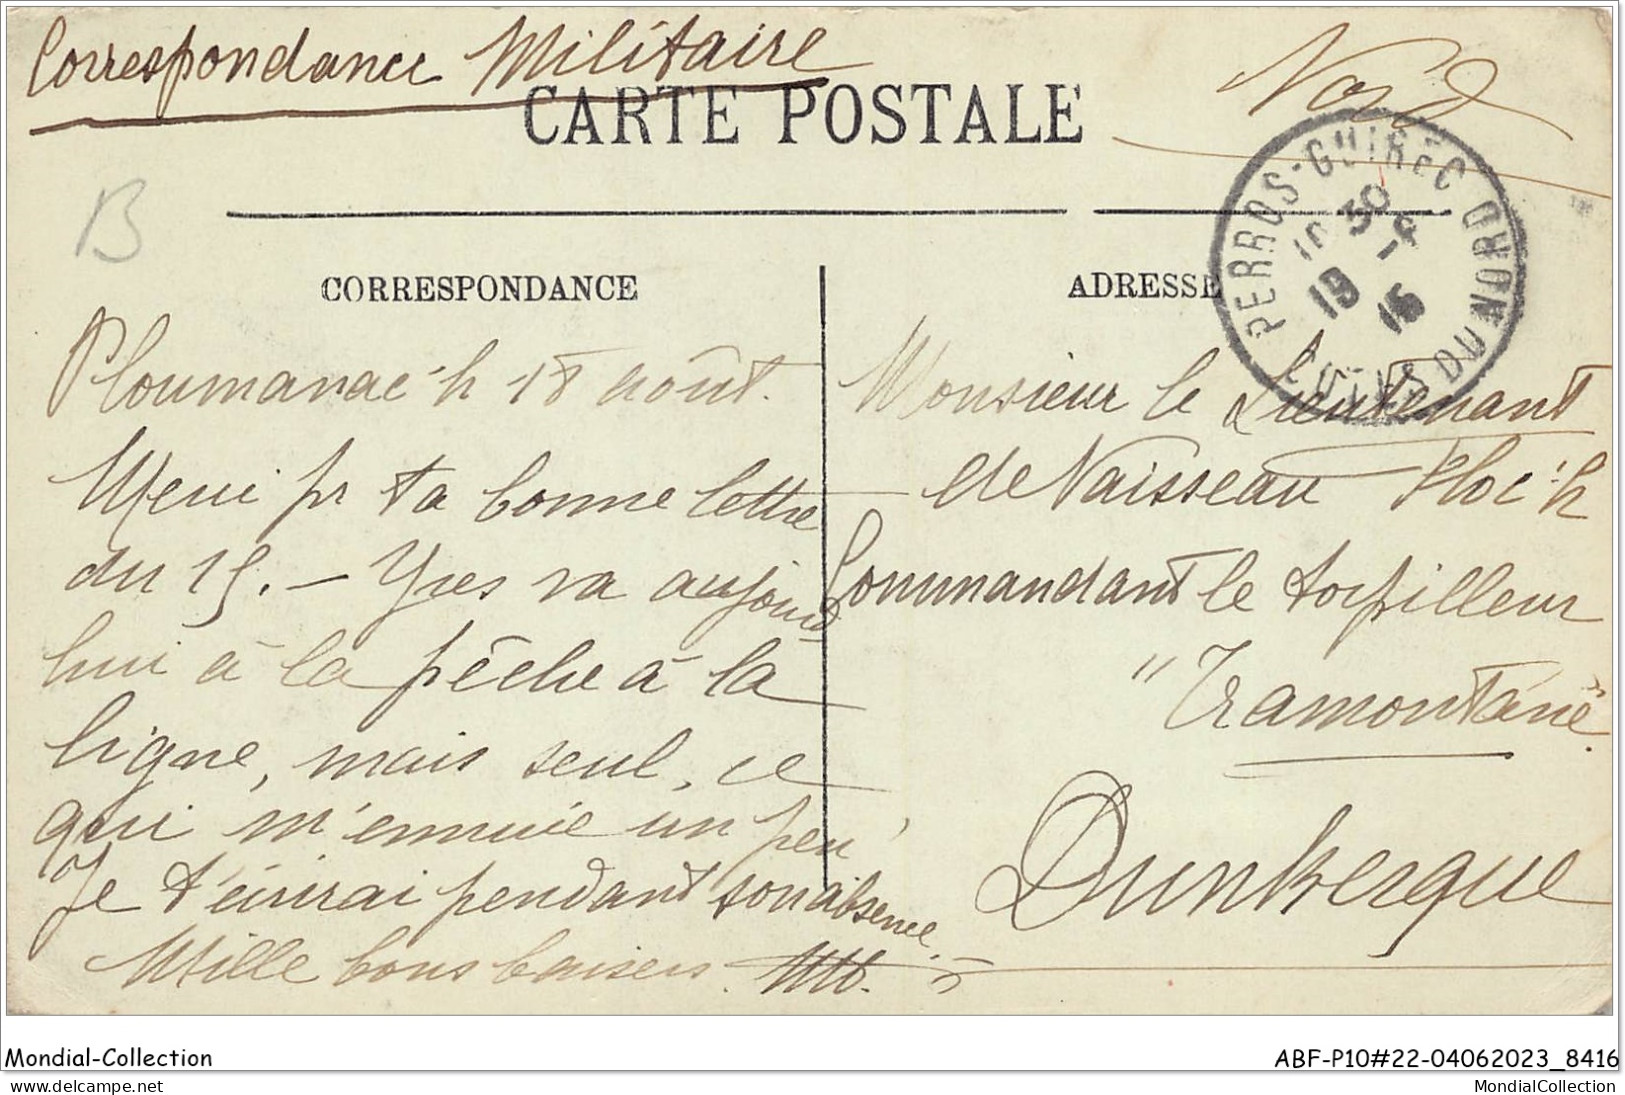 Correspondance Militaire
Nord
CARTE POSTALE
B
PERROS-GUIREC CÔTES DU NORD
10 30
19 - 8
15
CORRESPONDANCE
Ploumanac'h 18 août.
Merci pr ta bonne lettre
du 15. — Yves va aujourd
hui à la pêche à la
ligne, mais seul, ce
qui m'ennuie un peu
Je t'écrirai pendant son absence.
Mille bons baisers.
ADRESSE
Monsieur le Lieutenant
de Vaisseau Floc'h
Commandant le torpilleur
"Tramontane"
Dunkerque
Mondial-Collection
ABF-P10#22-04062023_8416
MondialCollection